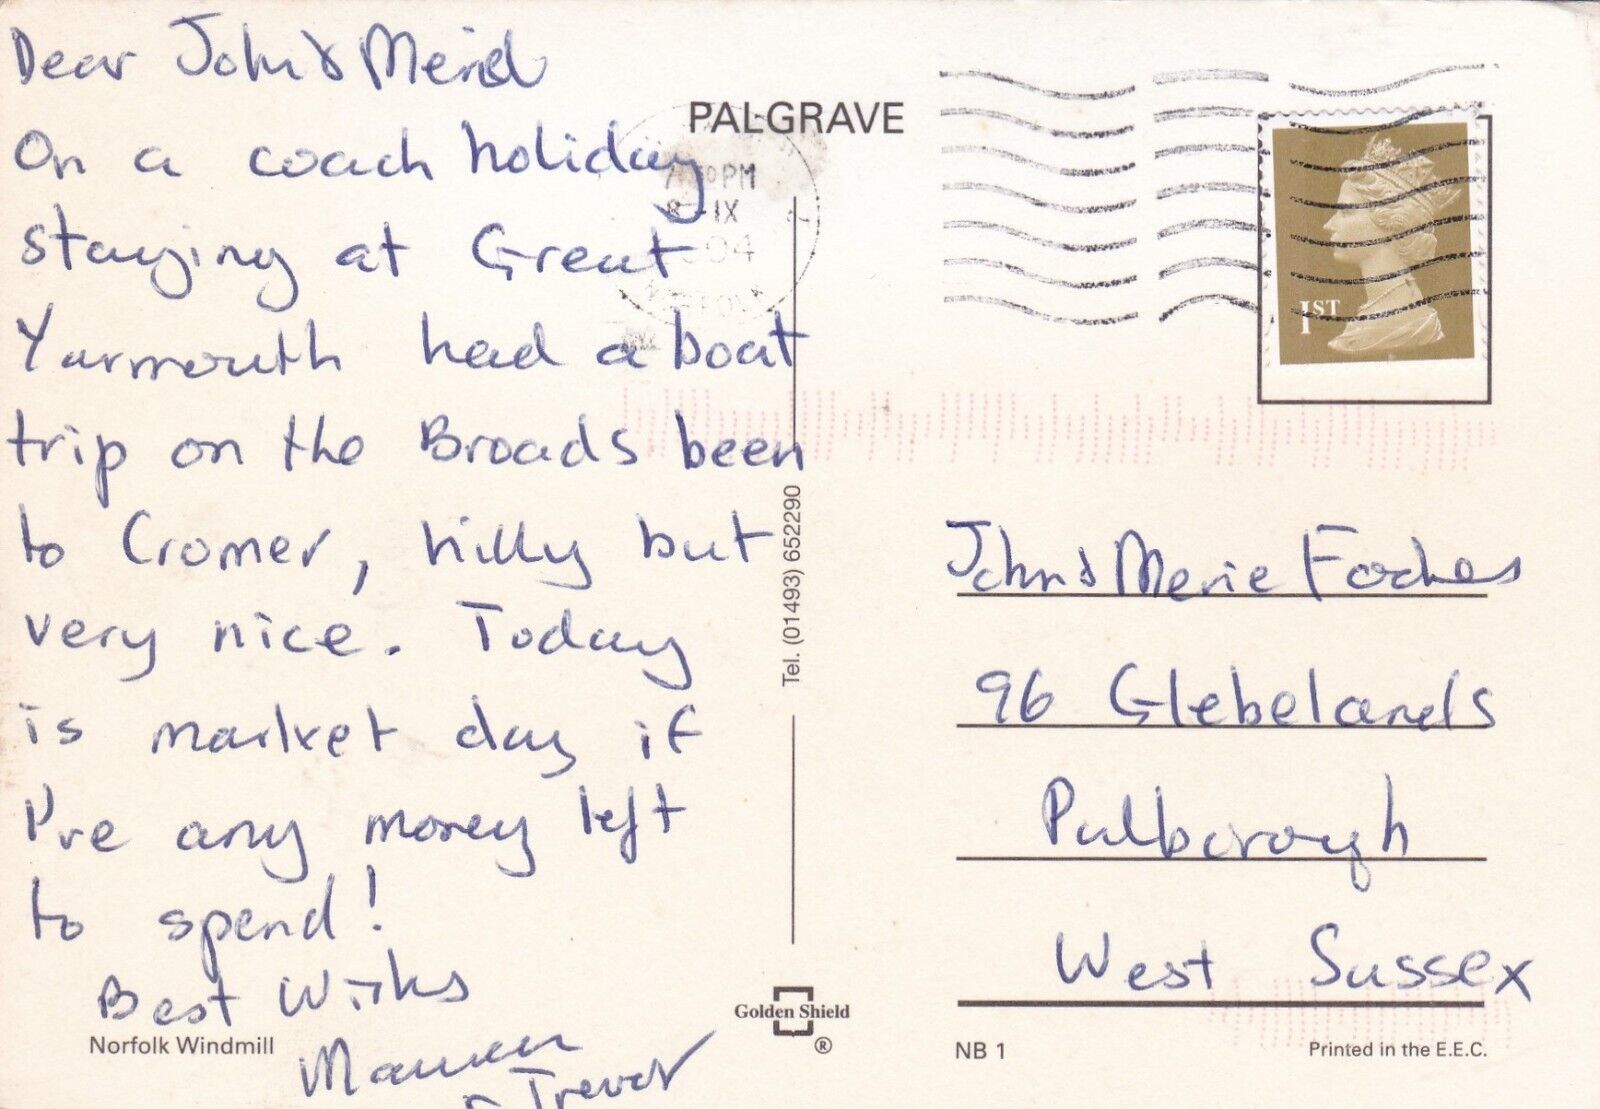 Dear John & Meriel
On a coach holiday
staying at Great
Yarmouth had a boat
trip on the Broads been
to Cromer, hilly but
very nice. Today
is market day if
I've any money left
to spend!
Best Wishes
Maureen
& Trevor
Norfolk Windmill
PALGRAVE
7 PM
8 - IX
04
NORFOLK
Tel. (01493) 652290
Golden Shield
®
1ST
John & Merie
96 Glebelands
Pulborough
West Sussex
NB 1
Printed in the E.E.C.